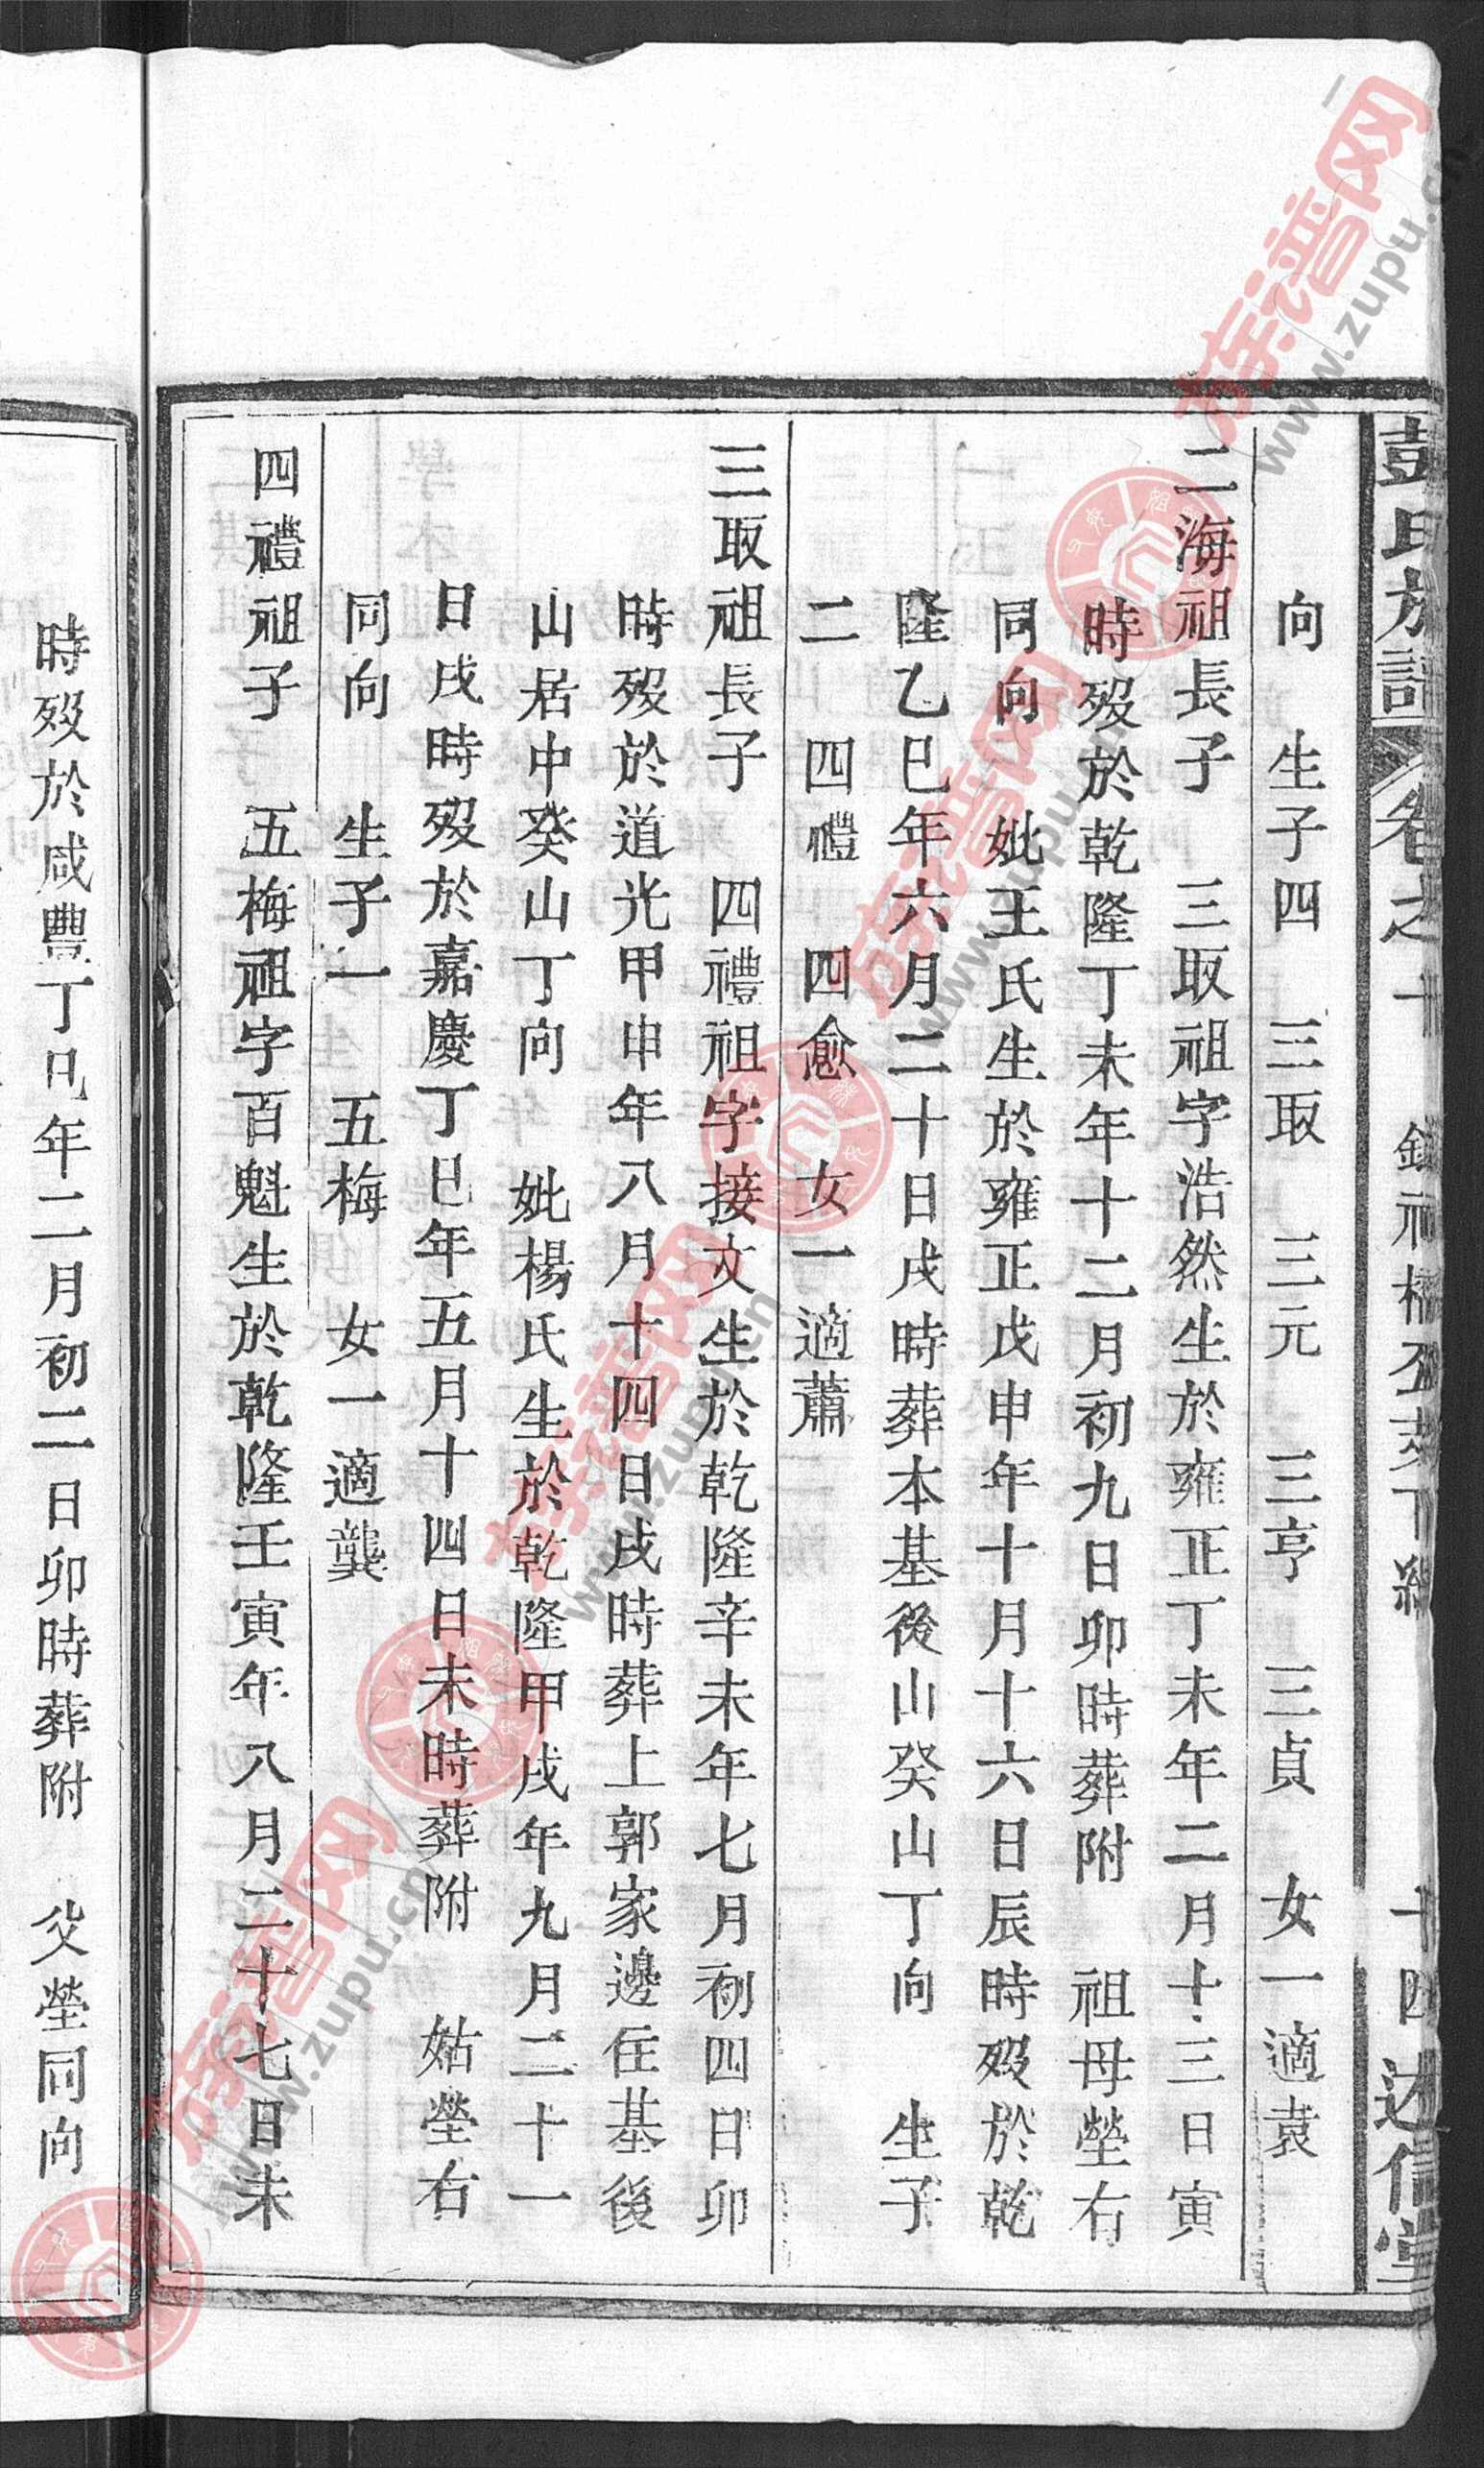 彭氏族譜 卷之十 十四 述信堂
向 生子四 三取 三元 三亨 三貞 女一適袁
二海祖長子 三取祖字浩然生於雍正丁未年二月十三日寅
時歿於乾隆丁未年十二月初九日卯時葬附 祖母塋右
同向 妣王氏生於雍正戊申年十月十六日辰時歿於乾
隆乙巳年六月二十日戌時葬本基後山癸山丁向 生子
二 四禮 四愈 女一適蕭
三取祖長子 四禮祖字接文生於乾隆辛未年七月初四日卯
時歿於道光甲申年八月十四日戌時葬上郭家邊住基後
山居中癸山丁向 妣楊氏生於乾隆甲戌年九月二十一
日戌時歿於嘉慶丁巳年五月十四日未時葬附 姑塋右
同向 生子一 五梅 女一適龔
四禮祖子 五梅祖字百魁生於乾隆壬寅年八月二十七日未
時歿於咸豐丁巳年二月初二日卯時葬附 父塋同向
族谱网 www.zupu.cn
族谱网 www.zupu.cn
族谱网 www.zupu.cn
族谱网 www.zupu.cn